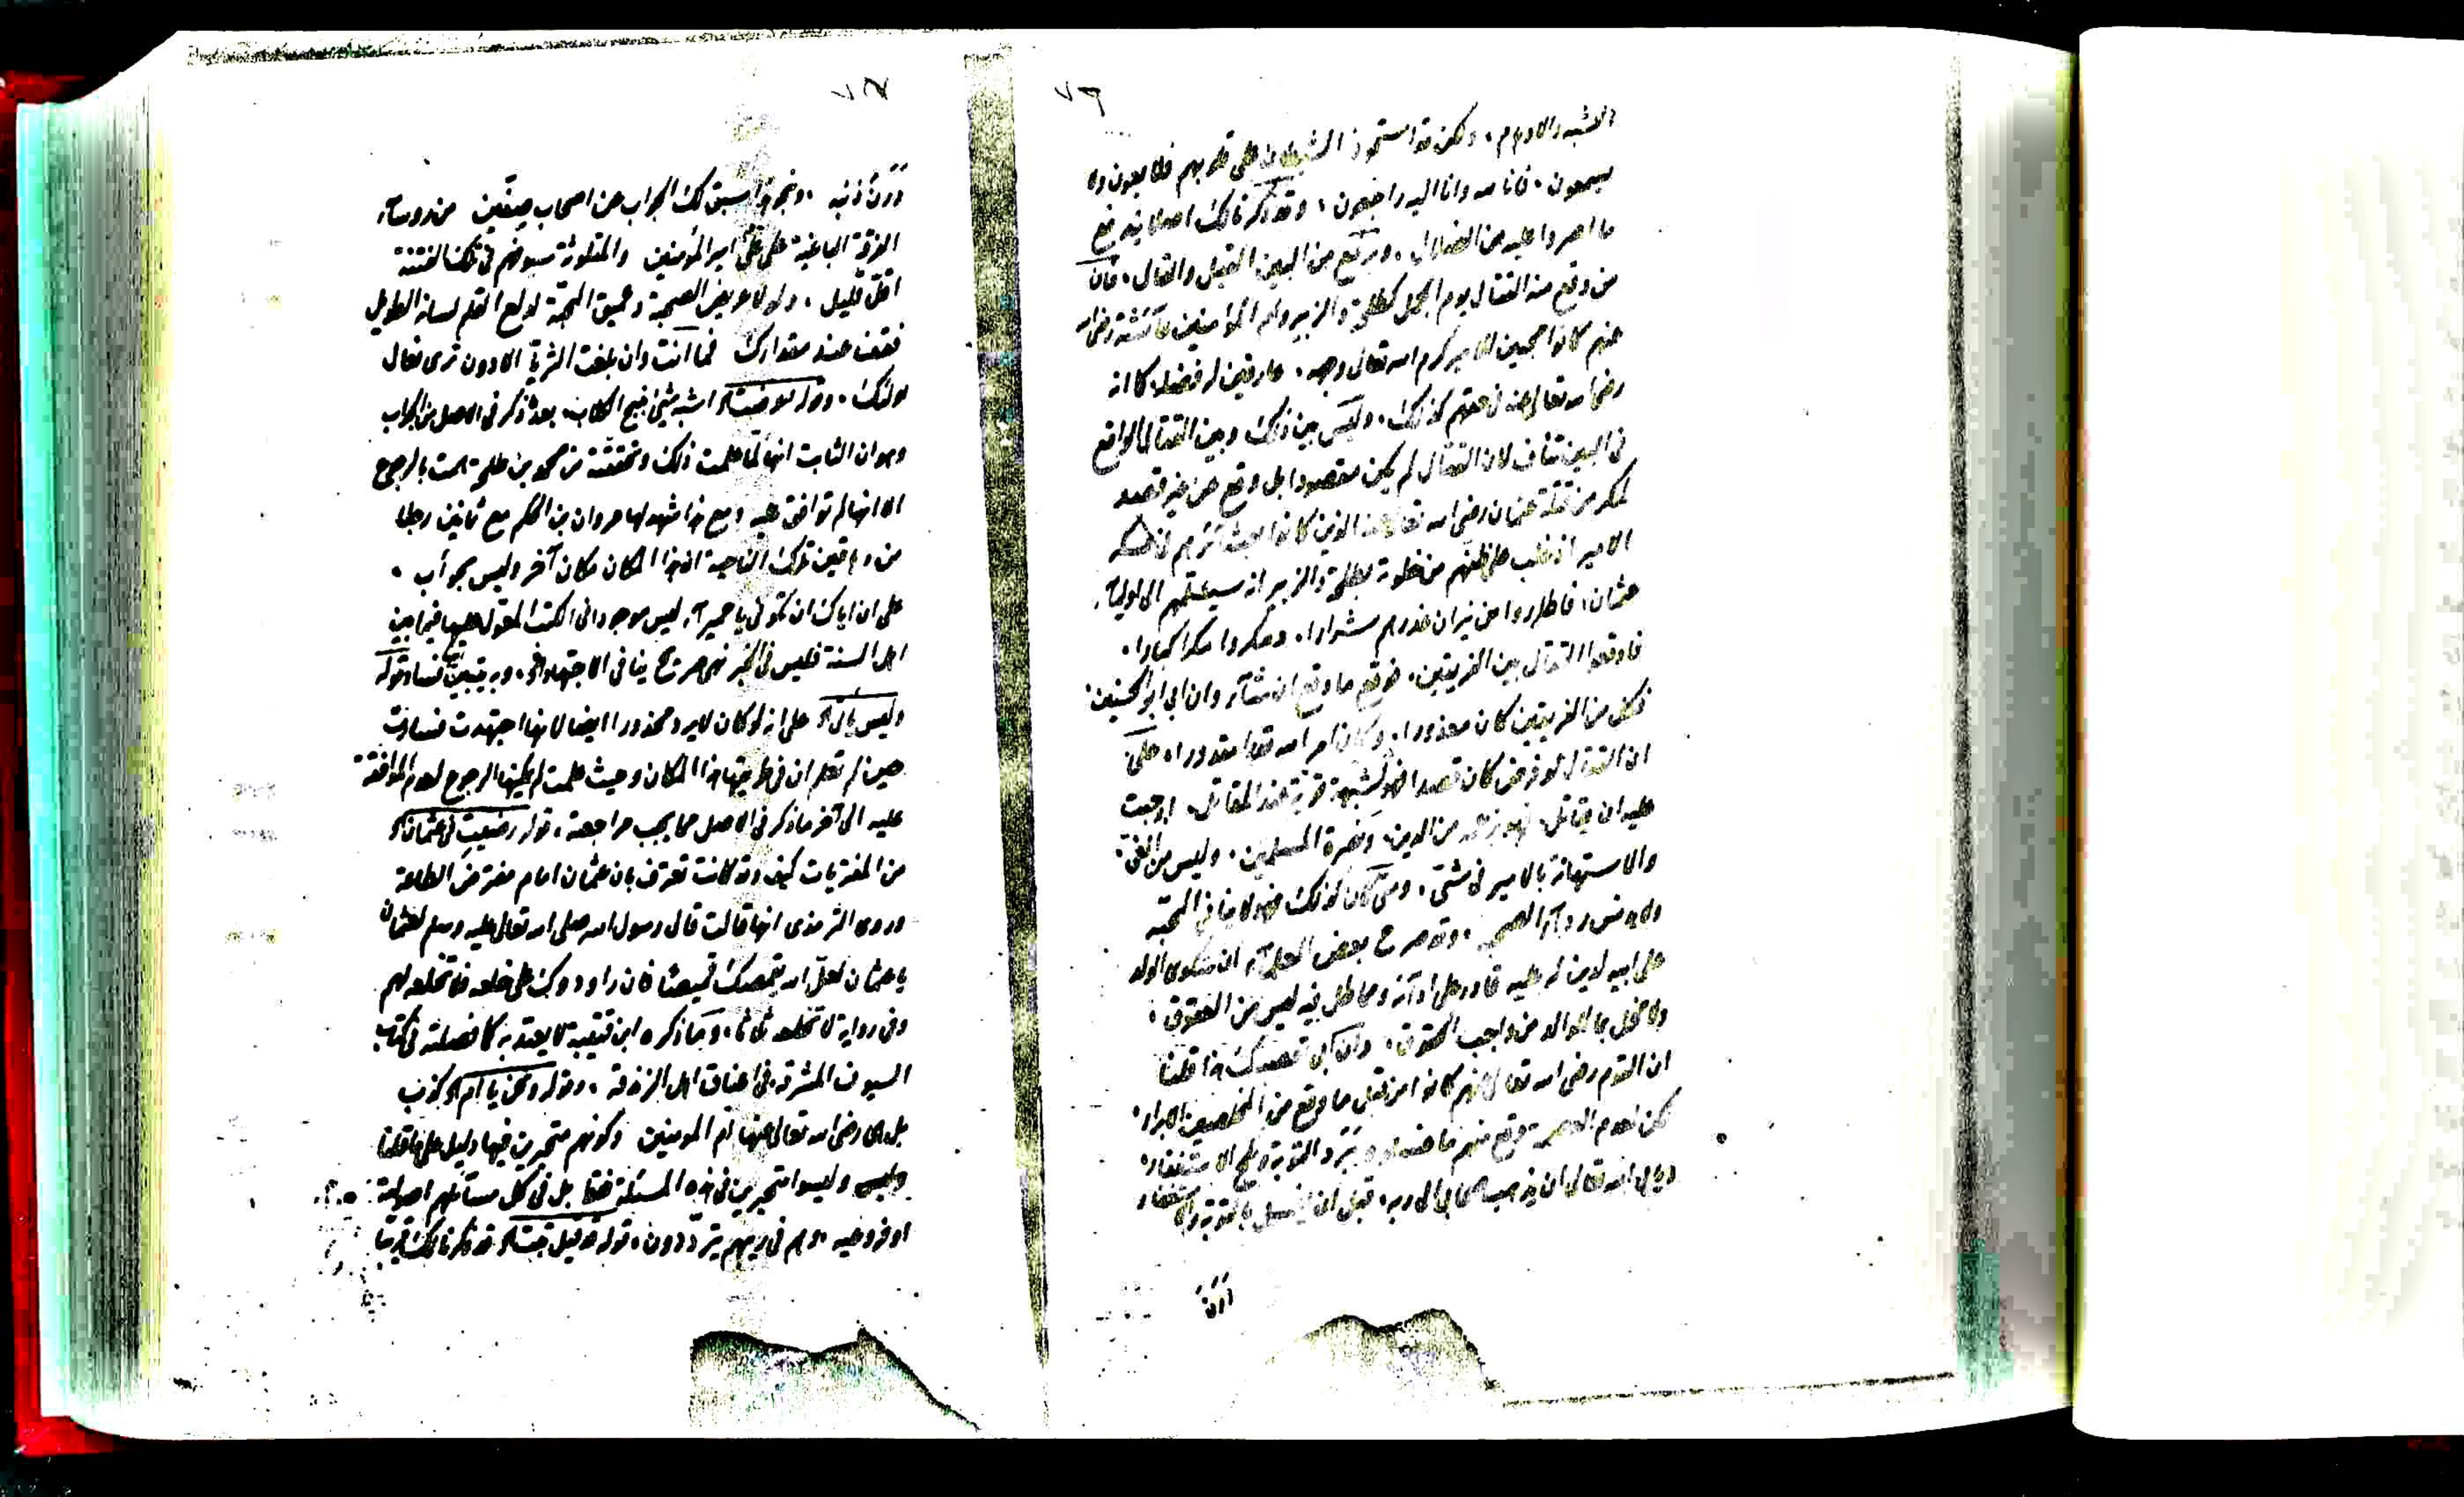 ٧٦
الشبه والاوهام ، ولكن قد استحوذ الشيطان على قلوبهم فلا يعون ولا
يسمعون ، فانا لله وانا اليه راجعون ، وقد ذكرنا لك اصلا يندفع
ما اصروا عليه من الضلال ، ويرتفع من البين القيل والقال ، فان
من وقع منه القتال يوم الجمل كطلحة والزبير وام المؤمنين عائشة رضي الله
عنهم كانوا محبين للامير كرم الله تعالى وجهه ، عارفين له فضله كما انه
رضي الله تعالى عنه في حقهم كذلك ، وليس بين ذلك وبين القتال الواقع
في البين تناف لان القتال لم يكن مقصودا بل وقع عن غير قصد
لمكر من قتلة عثمان رضي الله تعالى عنه الذين كانوا بعشائرهم في عسكر
الامير اذ غلب على ظنهم من خلوة بطلحة والزبير انه سيسلمهم الى اولياء
عثمان ، فاطاروا من نيران غدرهم شرارا ، ومكروا مكرا كبارا ،
فاوقعوا القتال بين الفريقين ، فوقع ما وقع ان شاء وان ابى ابو الحسنين ،
فكل من الفريقين كان معذورا ، وكان امر الله قدرا مقدورا ، على
ان القتال لو فرض كان قصدا فهو لشبهة قوية عند المقاتل ، اوجبت
عليه ان يقاتل ، فهو بزعمه من الدين ، ونصرة المسلمين ، وليس من الغي ،
والاستهانة بالامير في شئ ، ومتى كان كذلك فهو لا ينافي المحبة
ولا يدنس رداء الصحبة ، وقد صرح بعض العلماء ان شكوى الولد
على ابيه لدين له عليه قادر على ادائه ومماطل فيه ليس من العقوق ،
ولا مخل بما للوالد من واجب الحقوق ، وان ابى تعصبك هذا قلنا
ان القوم رضي الله تعالى عنهم كانوا من قبل ما وقع من المخلصين الابرار ،
لكن لعدم العصمة وقع منهم ما غسلوه ببرد التوبة وثلج الاستغفار ،
ويأبى الله تعالى ان يذهب صحابي الى ربه ، قبل ان يغسل بالتوبة والاستغفار
درن
٧٧
درن ذنبه ، وبنحو هذا سبق لك الجواب عن اصحاب صفين من روساء
الفرقة الباغية على علي امير المؤمنين والمتلوثة سيوفهم في تلك الفتنة
اقل قليل ، ولولا عريض الصحبة وعميق المحبة لدلع القلم لسانه الطويل
فقف عند مقدارك فما انت وان بلغت الثريا الا دون ثرى نعال
اولئك ، وقوله لو ضيتك الخ اشبه شئ بنبح الكلاب ، بعد ذكر في الاصل من الجواب
وهو ان الثابت انها لما علمت ذلك وتحققته من محمد بن طلحة همت بالرجوع
الا انها لم توافق عليه ومع هذا شهد لها مروان بن الحكم مع ثمانين رجلا
من دهاقين تلك الناحية ان هذا المكان مكان آخر وليس بحوأب ،
على ان اياك ان تكوني يا حميراء ليس موجودا في الكتب المعول عليها فيما بين
اهل السنة فليس في الخبر نهي صريح ينافي الاجتهاد الخ ، وبه يتبين ايضا فساد قوله
وليس بأن الخ على انه لو كان لا يرد محذورا ايضا لانها اجتهدت فسارت
حين لم تعلم ان في طريقها هذا المكان وحيث علمت لم يمكنها الرجوع لعدم الموافقة
عليه الى آخر ما ذكر في الاصل مما يجب مراجعته ، قوله رضيت في عثمان الخ
من المفتريات كيف وقد كانت تعترف بان عثمان امام مفترض الطاعة
وروى الترمذي انها قالت قال رسول الله صلى الله تعالى عليه وسلم لعثمان
يا عثمان لعل الله يقمصك قميصا فان راودوك على خلعه فلا تخلعه لهم
وفي رواية لا تخلعه ثلاثا ، وما ذكره ابن قتيبة لا يعتد به كما فصلته في كتاب
السيوف المشرقة في اعناق اهل الزندقة ، وقوله ونحن يا ام الخ كذب
بل هي رضي الله تعالى عنها ام المؤمنين وكونهم متحيرين فيها دليل على ما قلنا
وليس وليسوا متحيرين في هذه المسئلة فقط بل في كل مسائلهم اصولية
او فروعيه ، وهم في ريبهم يترددون ، قوله قد قيل تبت الخ قد ذكرنا لك قريبا